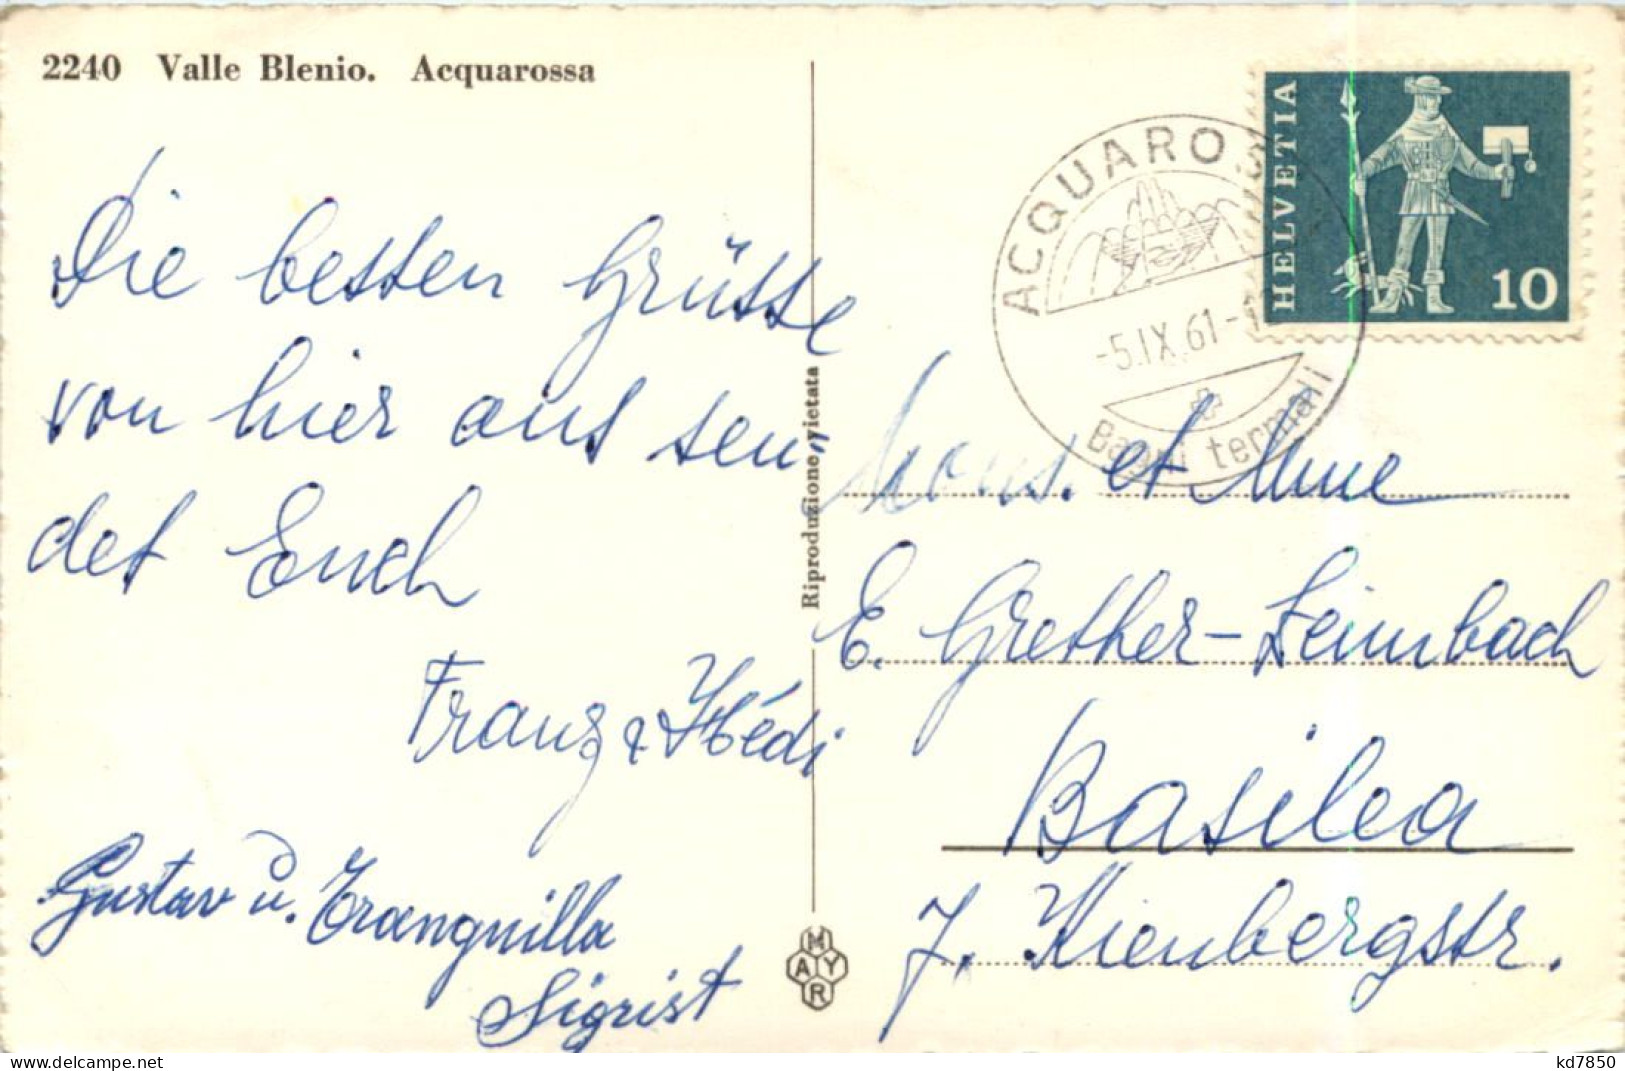 2240 Valle Blenio. Acquarossa
Die besten Grüsse
von hier aus sen-
det Euch
Franz & Hédi
Gustav u. Tranquilla
Sigrist
Riproduzione vietata
MAYR
ACQUAROS
-5.IX.61-1
Bagni termali
HELVETIA
10
Mons. et Mme
E. Grether-Leimbach
Basilea
J. Kienbergstr.
delcampe.net
kd7850